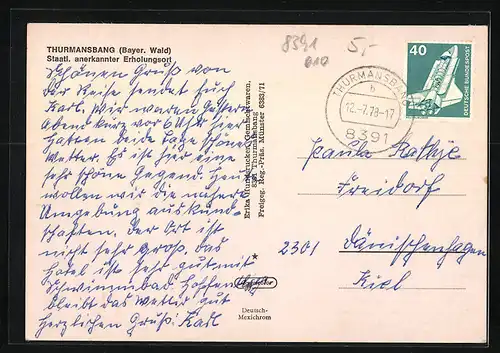 THURMANSBANG (Bayer. Wald)
Staatl. anerkannter Erholungsort
Schönen Gruß von
der Reise sendet Euch
Karl. Wir waren gestern
Abend kurz vor 6 Uhr hier
hatten beide Tage schönes
Wetter. Es ist hier eine
sehr schöne Gegend. Heute
wollen wir die nähere
Umgebung auskund-
schaften. Der Ort ist
nicht sehr groß, das
Hotel ist sehr gut mit
Schwimmbad. Hoffentl.
bleibt das Wetter gut
Herzlichen Gruß: Karl
Erika Gemischtwaren,
8391 Thurmansbang
Freigeg. Reg.-Präs. Münster 6383/71
*
Deutsch-
Mexichrom
8391
010
5,-
THURMANSBANG
b
12.-7.78-17
8391
40
DEUTSCHE BUNDESPOST
Paula
Freidorf
2301 Dänischenhagen
Kiel